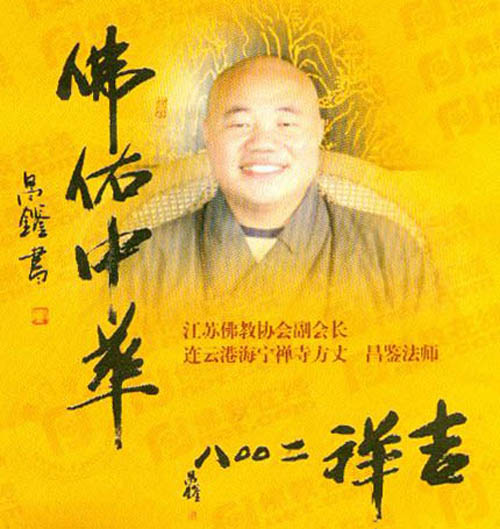 佛佑中華
昌鑑書
江苏佛教协会副会长
连云港海宁禅寺方丈　昌鉴法师
吉祥二〇〇八
昌鑑